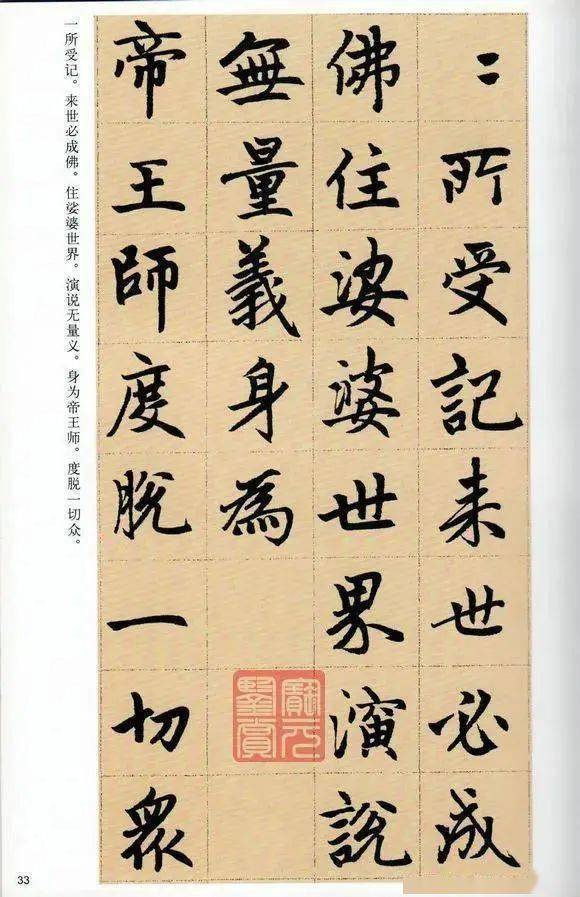 〻所受記来世必成
佛住娑婆世界演說
無量義身為
帝王師度脫一切眾
寶元
鑒賞
一所受记。来世必成佛。住娑婆世界。演说无量义。身为帝王师。度脱一切众。
33